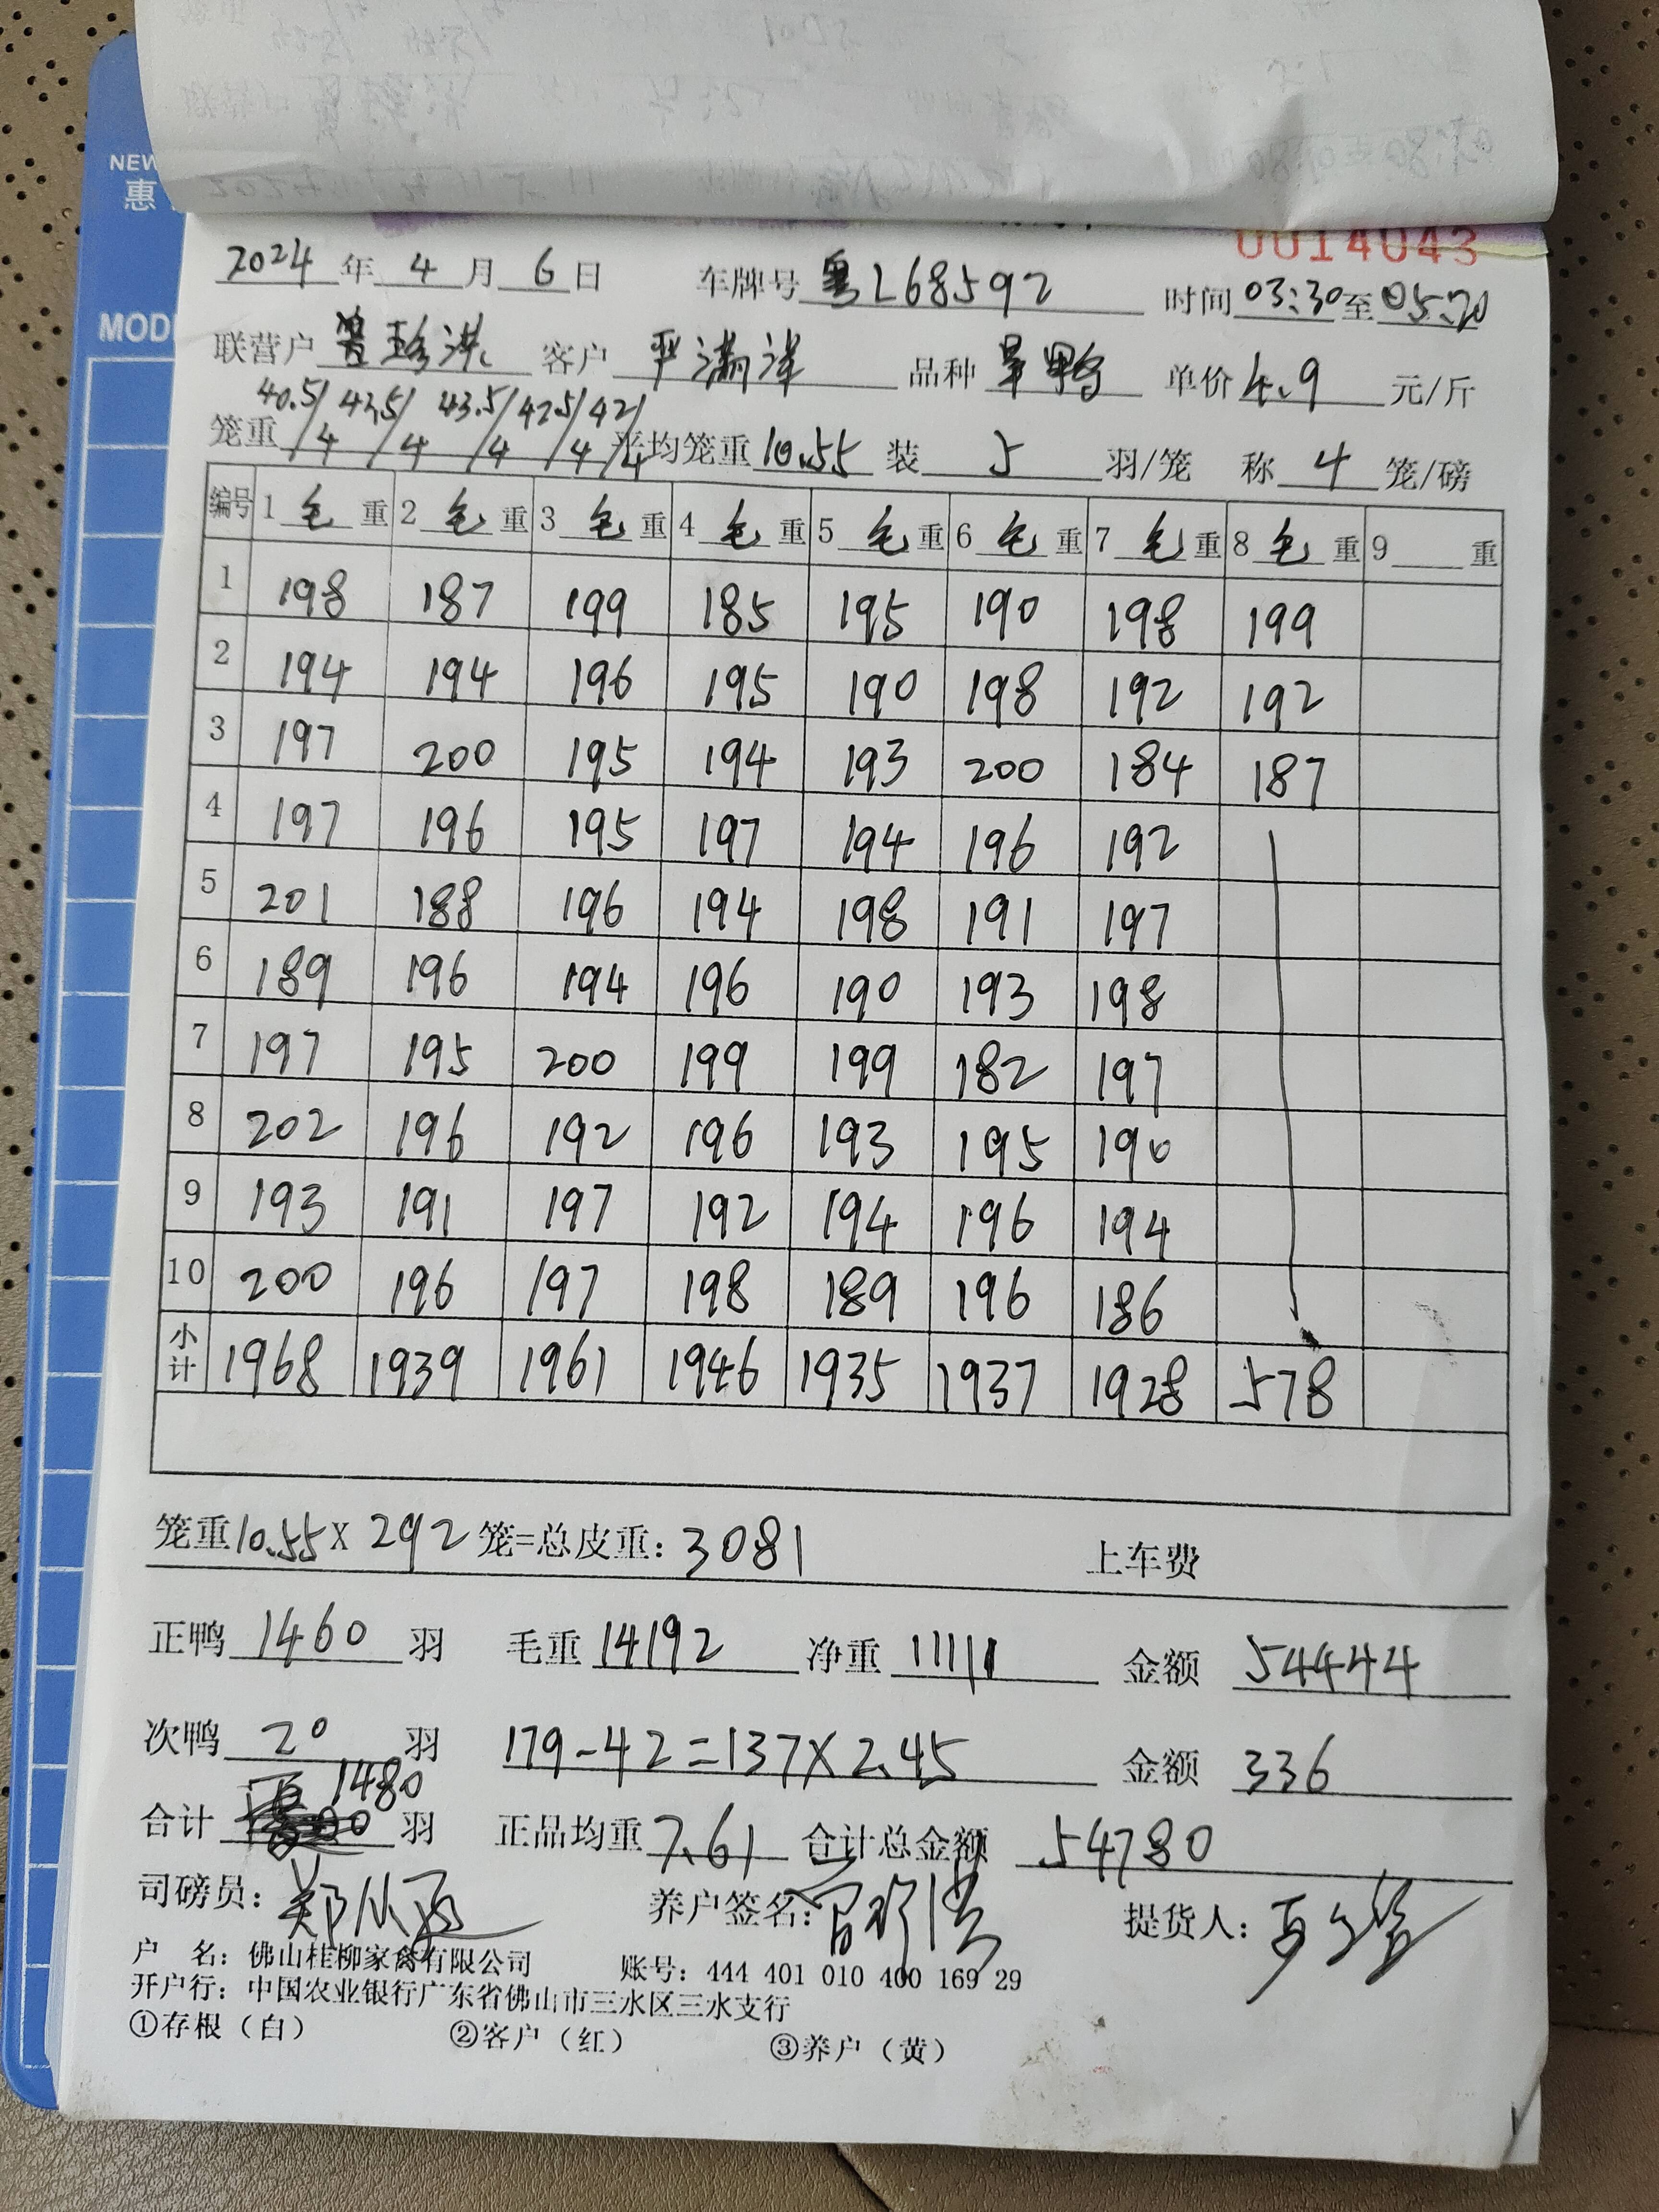 NEW
惠
MODE
0014043
2024年4月6日 车牌号 粤L68592 时间03:30至05:20
联营户 客户 严满洋 品种 单价4.9元/斤
笼重 40.5/4 43.5/4 43.5/4 42.5/4 42/4 平均笼重10.55 装5羽/笼 称4笼/磅
编号 1毛重 2毛重 3毛重 4毛重 5毛重 6毛重 7毛重 8毛重 9 重
1 198 187 199 185 195 190 198 199
2 194 194 196 195 190 198 192 192
3 197 200 195 194 193 200 184 187
4 197 196 195 197 194 196 192
5 201 188 196 194 198 191 197
6 189 196 194 196 190 193 198
7 197 195 200 199 199 182 197
8 202 196 192 196 193 195 190
9 193 191 197 192 194 196 194
10 200 196 197 198 189 196 186
小计 1968 1939 1961 1946 1935 1937 1928 578
笼重10.55X292笼=总皮重:3081 上车费
正鸭1460羽 毛重14192 净重11111 金额54444
次鸭20羽 179-42=137X2.45 金额336
合计1480羽 正品均重7.61 合计总金额54780
司磅员: 养户签名: 提货人:
户 名:佛山桂柳家禽有限公司 账号:444 401 010 400 169 29
开户行:中国农业银行广东省佛山市三水区三水支行
①存根(白) ②客户(红) ③养户(黄)